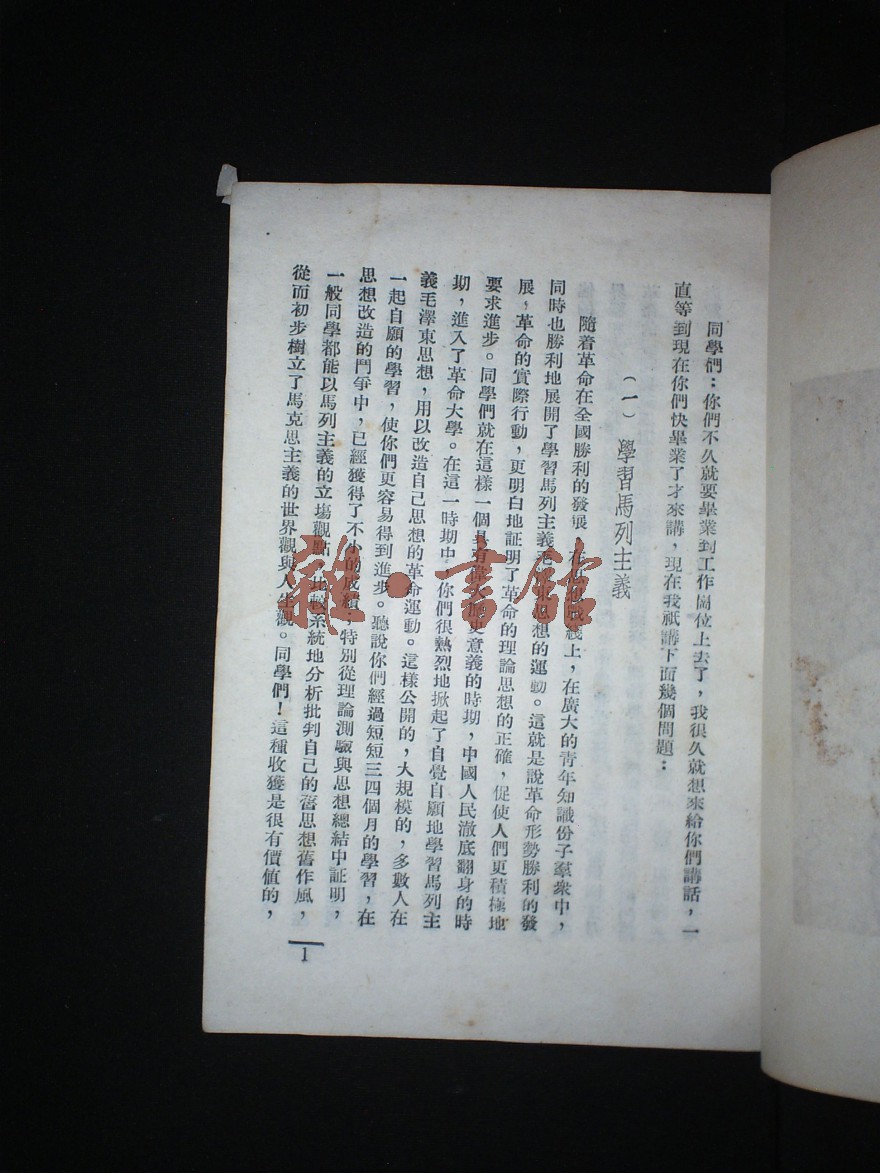 同學們：你們不久就要畢業到工作崗位上去了，我很久就想來給你們講話，一
直等到現在你們快畢業了才來講，現在我祇講下面幾個問題：
（一）學習馬列主義
隨着革命在全國勝利的發展，在思想戰綫上，在廣大的青年知識份子羣衆中，
同時也勝利地展開了學習馬列主義毛澤東思想的運動。這就是說革命形勢勝利的發
展，革命的實際行動，更明白地証明了革命的理論思想的正確，促使人們更積極地
要求進步。同學們就在這樣一個具有偉大歷史意義的時期，中國人民澈底翻身的時
期，進入了革命大學。在這一時期中，你們很熱烈地掀起了自覺自願地學習馬列主
義毛澤東思想，用以改造自己思想的革命運動。這樣公開的，大規模的，多數人在
一起自願的學習，使你們更容易得到進步。聽說你們經過短短三四個月的學習，在
思想改造的鬥爭中，已經獲得了不小的成績，特別從理論測驗與思想總結中証明，
一般同學都能以馬列主義的立塲觀點，比較系統地分析批判自己的舊思想舊作風，
從而初步樹立了馬克思主義的世界觀與人生觀。同學們！這種收獲是很有價值的，
1
雜·書館